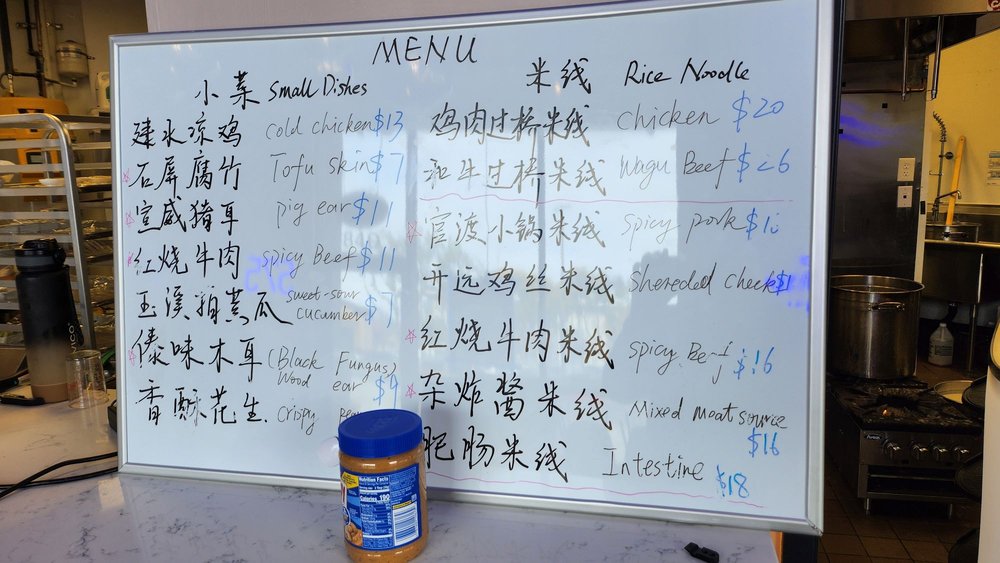 MENU
小菜 Small Dishes
建水凉鸡 cold chicken $13
石屏腐竹 Tofu skin $7
宣威猪耳 pig ear $11
红烧牛肉 spicy Beef $11
玉溪 黄瓜 sweet-sour cucumber $7
傣味木耳 (Black Fungus) Wood ear $9
香酥花生. Crispy
米线 Rice Noodle
鸡肉过桥米线 chicken $20
和牛过桥米线 Wagu Beef $26
官渡小锅米线 spicy pork
开远鸡丝米线 Shereded
红烧牛肉米线 spicy Beef $16
杂炸酱米线 Mixed meat source $16
肥肠米线 Intestine $18
Nutrition Facts
Calories 190